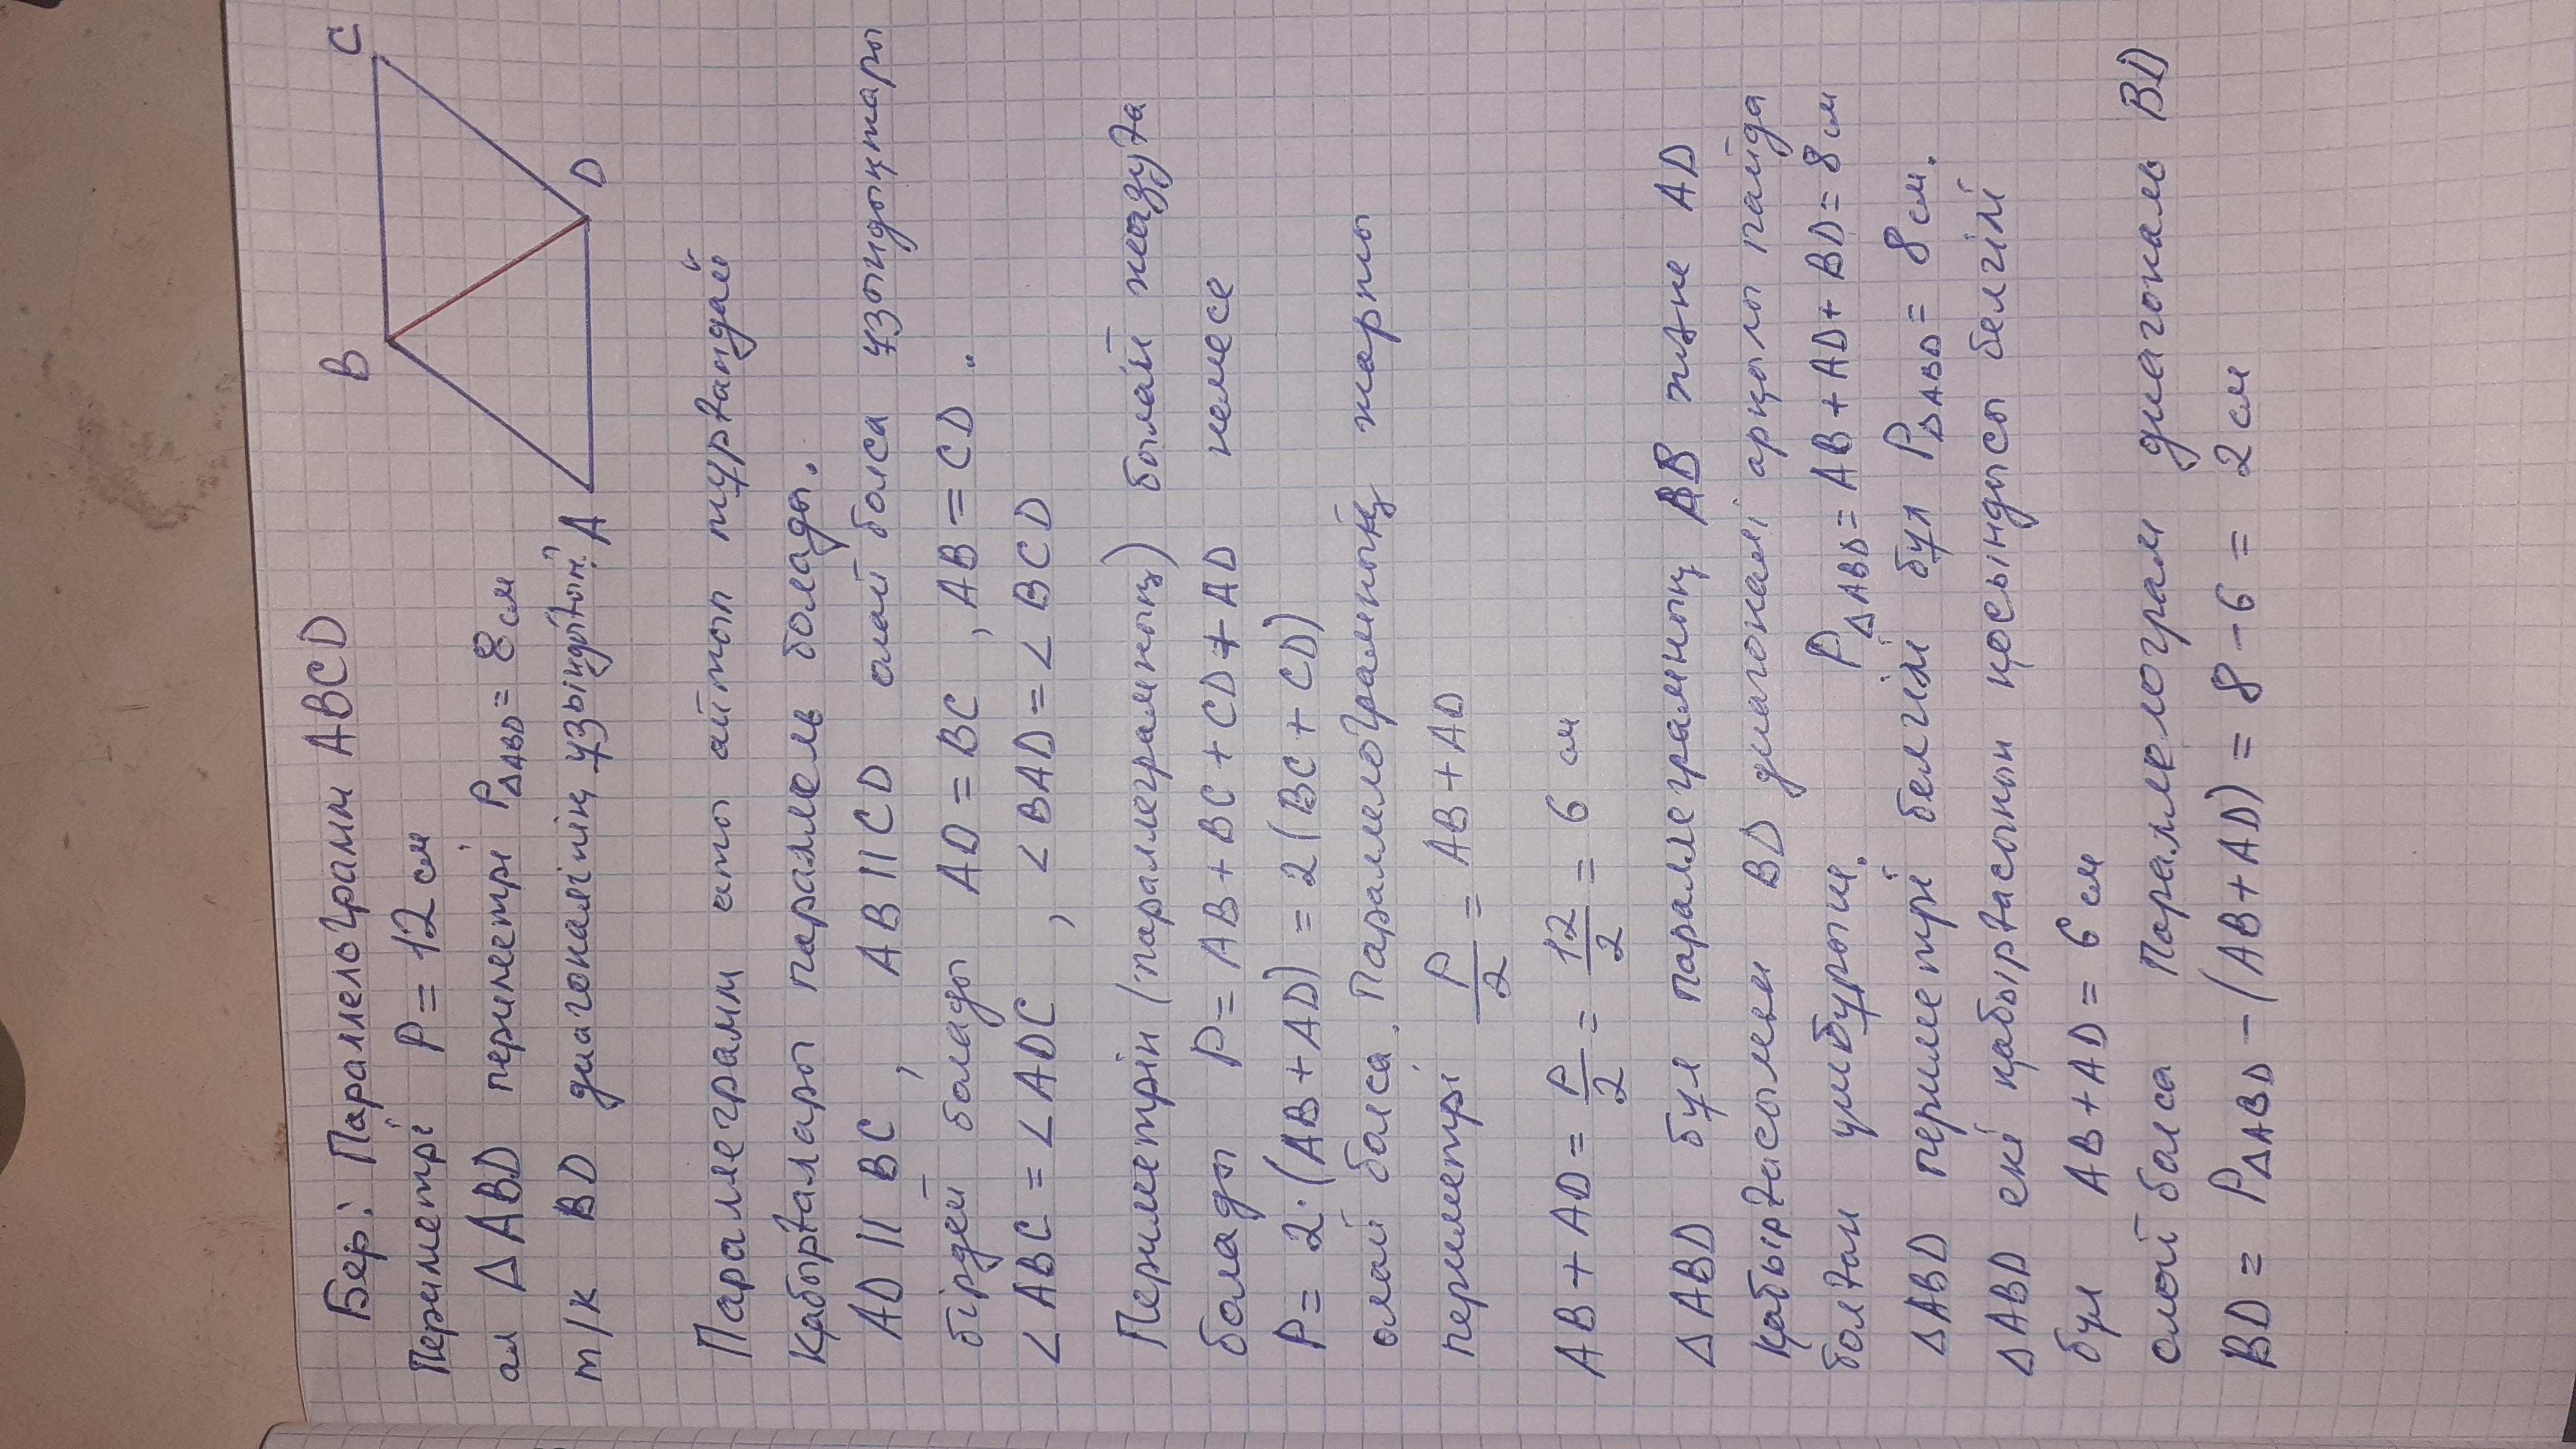 Бер: Параллелограмм ABCD
Периметрі P = 12 см
ал Δ ABD периметрі PΔABD = 8 см
т/к BD диагоналінің ұзындығын?
A
B
C
D
Параллеграмм аты айтып тұрғандай
Қабырғалары параллель болады.
AD || BC , AB || CD олай болса ұзындықтары
бірдей болады AD = BC , AB = CD .
< ABC = < ADC , < BAD = < BCD
Периметрін (параллеграмның) былай жазуға
болады P = AB + BC + CD + AD немесе
P = 2·(AB + AD) = 2(BC + CD)
олай болса. Параллелограмның жарты
периметрі P/2 = AB + AD
AB + AD = P/2 = 12/2 = 6 см
Δ ABD бұл параллеграмның AB және AD
қабырғасымен BD диагоналі арқылы пайда
болған үшбұрыш. PΔABD = AB + AD + BD = 8 см
Δ ABD периметрі белгілі бұл PΔABD = 8 см.
Δ ABD екі қабырғасының қосындысы белгілі
бұл AB + AD = 6 см
олой болса параллелограм диагональ BD
BD = PΔABD − (AB + AD) = 8 − 6 = 2 см